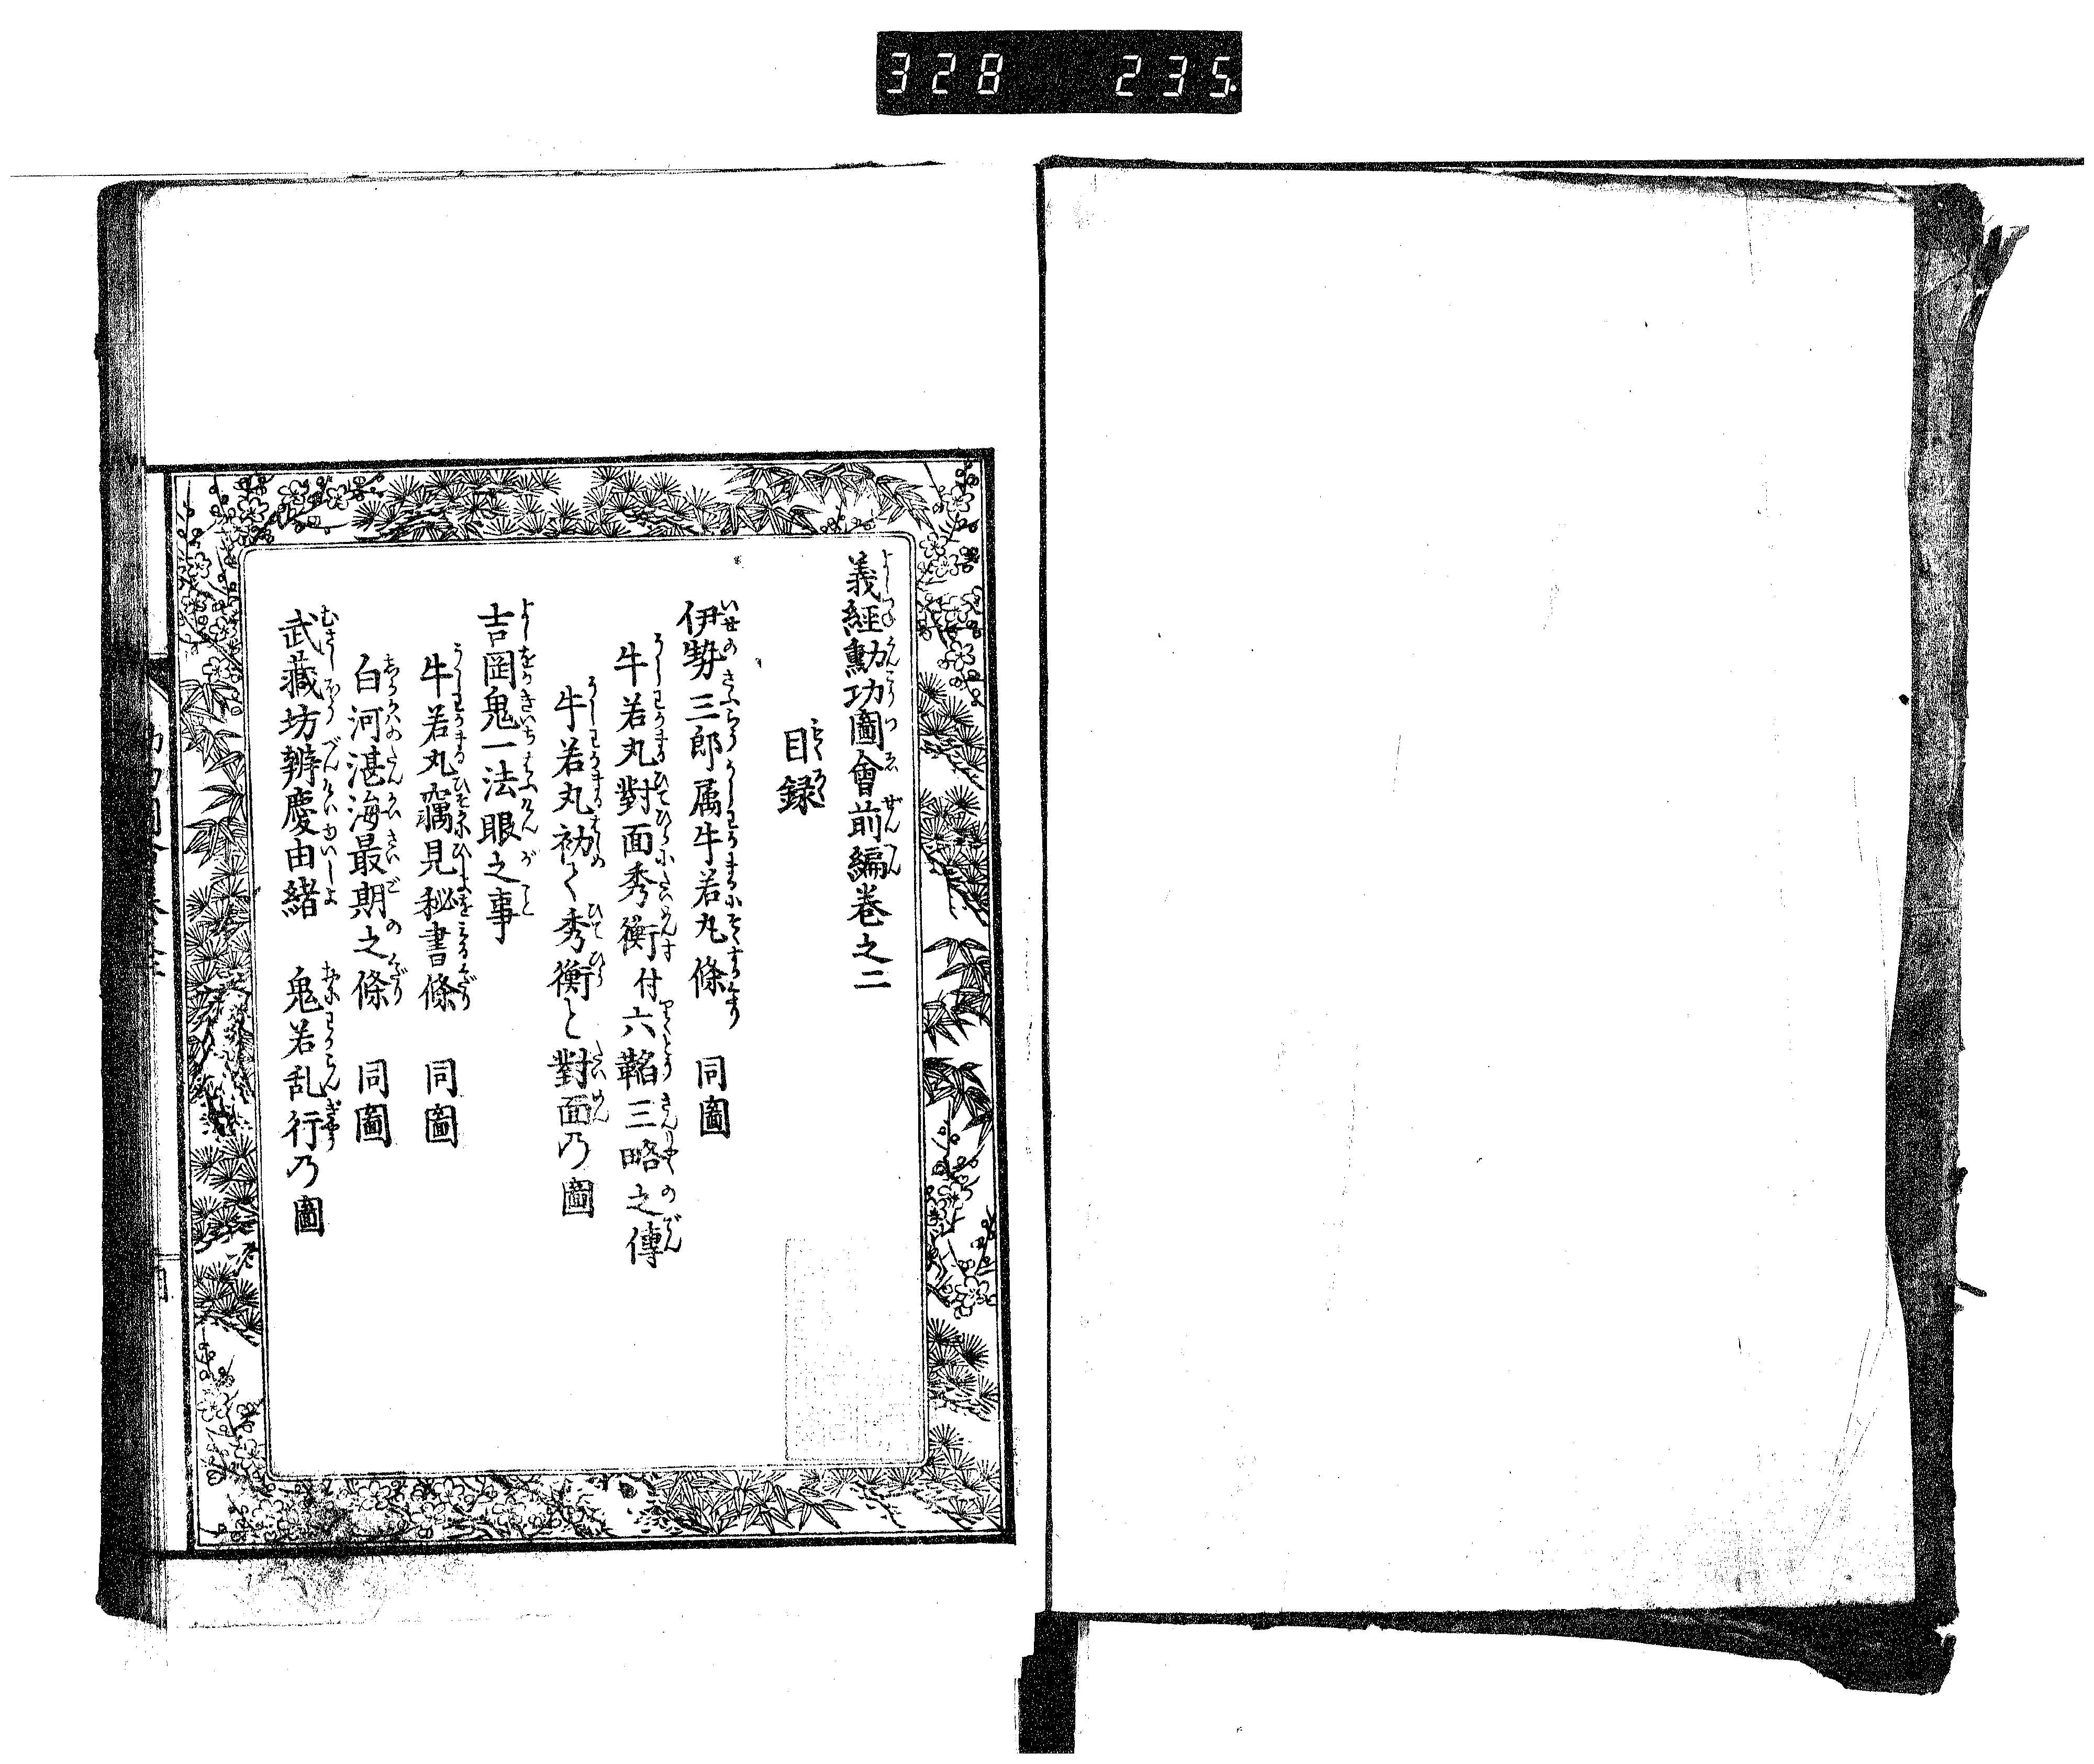 328 235
義經勲功圖會前編卷之二
目録
伊勢三郎属牛若丸條 同圖
牛若丸對面秀衡付六韜三略之傳
牛若丸初て秀衡と對面乃圖
吉岡鬼一法眼之事
牛若丸竊見秘書條 同圖
白河湛海最期之條 同圖
武藏坊辨慶由緒 鬼若乱行乃圖